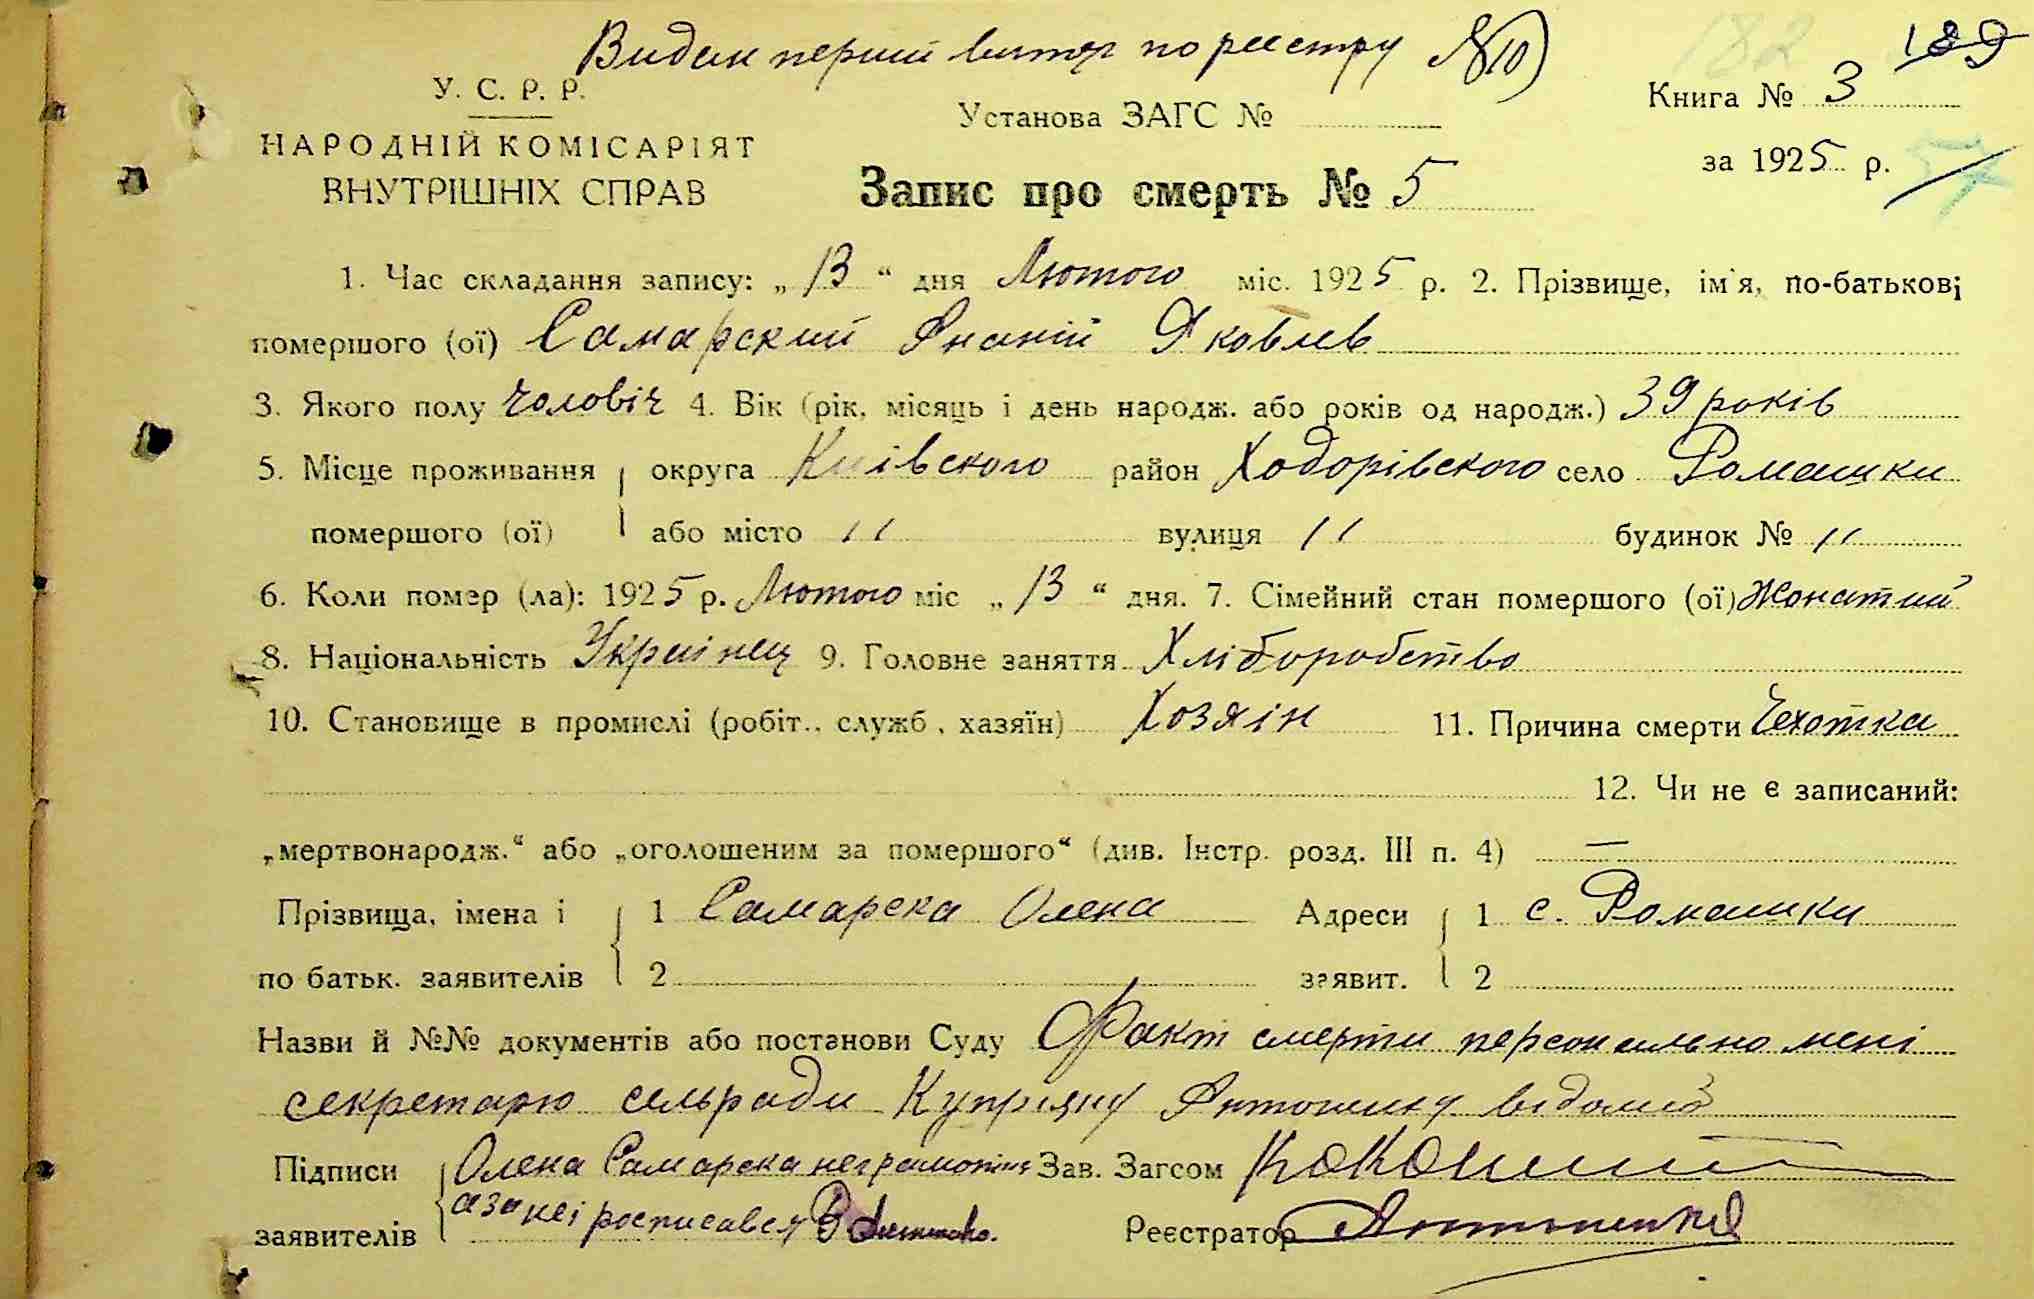 Видан перший витяг по реестру №10)
182 189
У. С. Р. Р.
НАРОДНІЙ КОМІСАРІЯТ
ВНУТРІШНІХ СПРАВ
Установа ЗАГС №
Запис про смерть № 5
Книга № 3
за 1925 р.
57
1. Час складання запису: „ 13 “ дня Лютого міс. 1925 р. 2. Прізвище, ім'я, по-батькові
помершого (ої) Самарский Ананій Яковлев
3. Якого полу чоловіч 4. Вік (рік, місяць і день народж. або років од народж.) 39 років
5. Місце проживання округа Київского район Ходорівского село Ромашки
помершого (ої) або місто 11 вулиця 11 будинок № 11
6. Коли помер (ла): 1925 р. Лютого міс „ 13 “ дня. 7. Сімейний стан помершого (ої) Жонатий
8. Національність Украінец 9. Головне заняття Хліборобство
10. Становище в промислі (робіт., служб, хазяїн) Хозяін 11. Причина смерти Чехотка
12. Чи не є записаний:
„мертвонародж.“ або „оголошеним за помершого“ (див. Інстр. розд. III п. 4) —
Прізвища, імена і 1 Самарска Олена Адреси 1 с. Ромашки
по батьк. заявителів 2 заявит. 2
Назви й №№ документів або постанови Суду Факт смерти персонально мені
секретарю сельради Купріяну Антоненку відомий
Підписи Олена Самарска неграмотна Зав. Загсом
заявителів а за неі росписався Реєстратор Антоненко